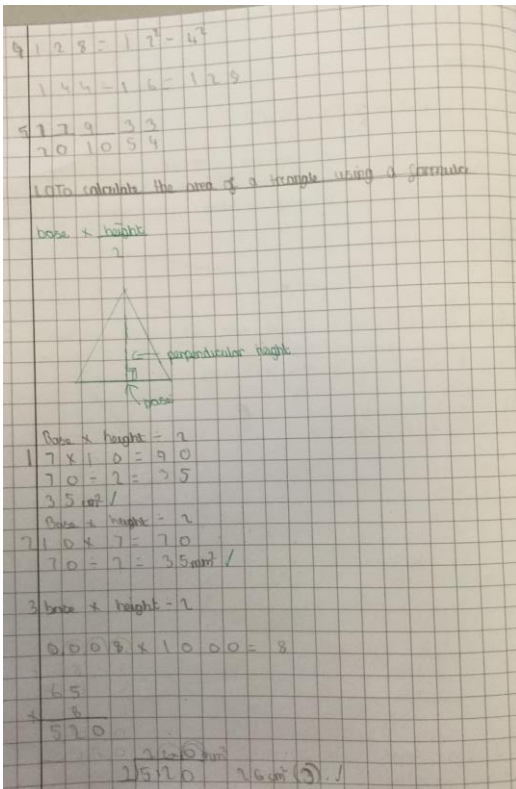 4 128 = 12² - 4²
144 - 16 = 128
5
20 10 5 4
LO To calculate the area of a triangle using a formula
base x height
2
perpendicular height
base
Base x height ÷ 2
1 7 x 10 = 90
70 ÷ 2 = 35
35 cm²
Base x height ÷ 2
2 10 x 7 = 70
70 ÷ 2 = 35mm²
3 base x height ÷ 2
0008 x 1000 = 8
65
x 8
520
2 520 26cm²